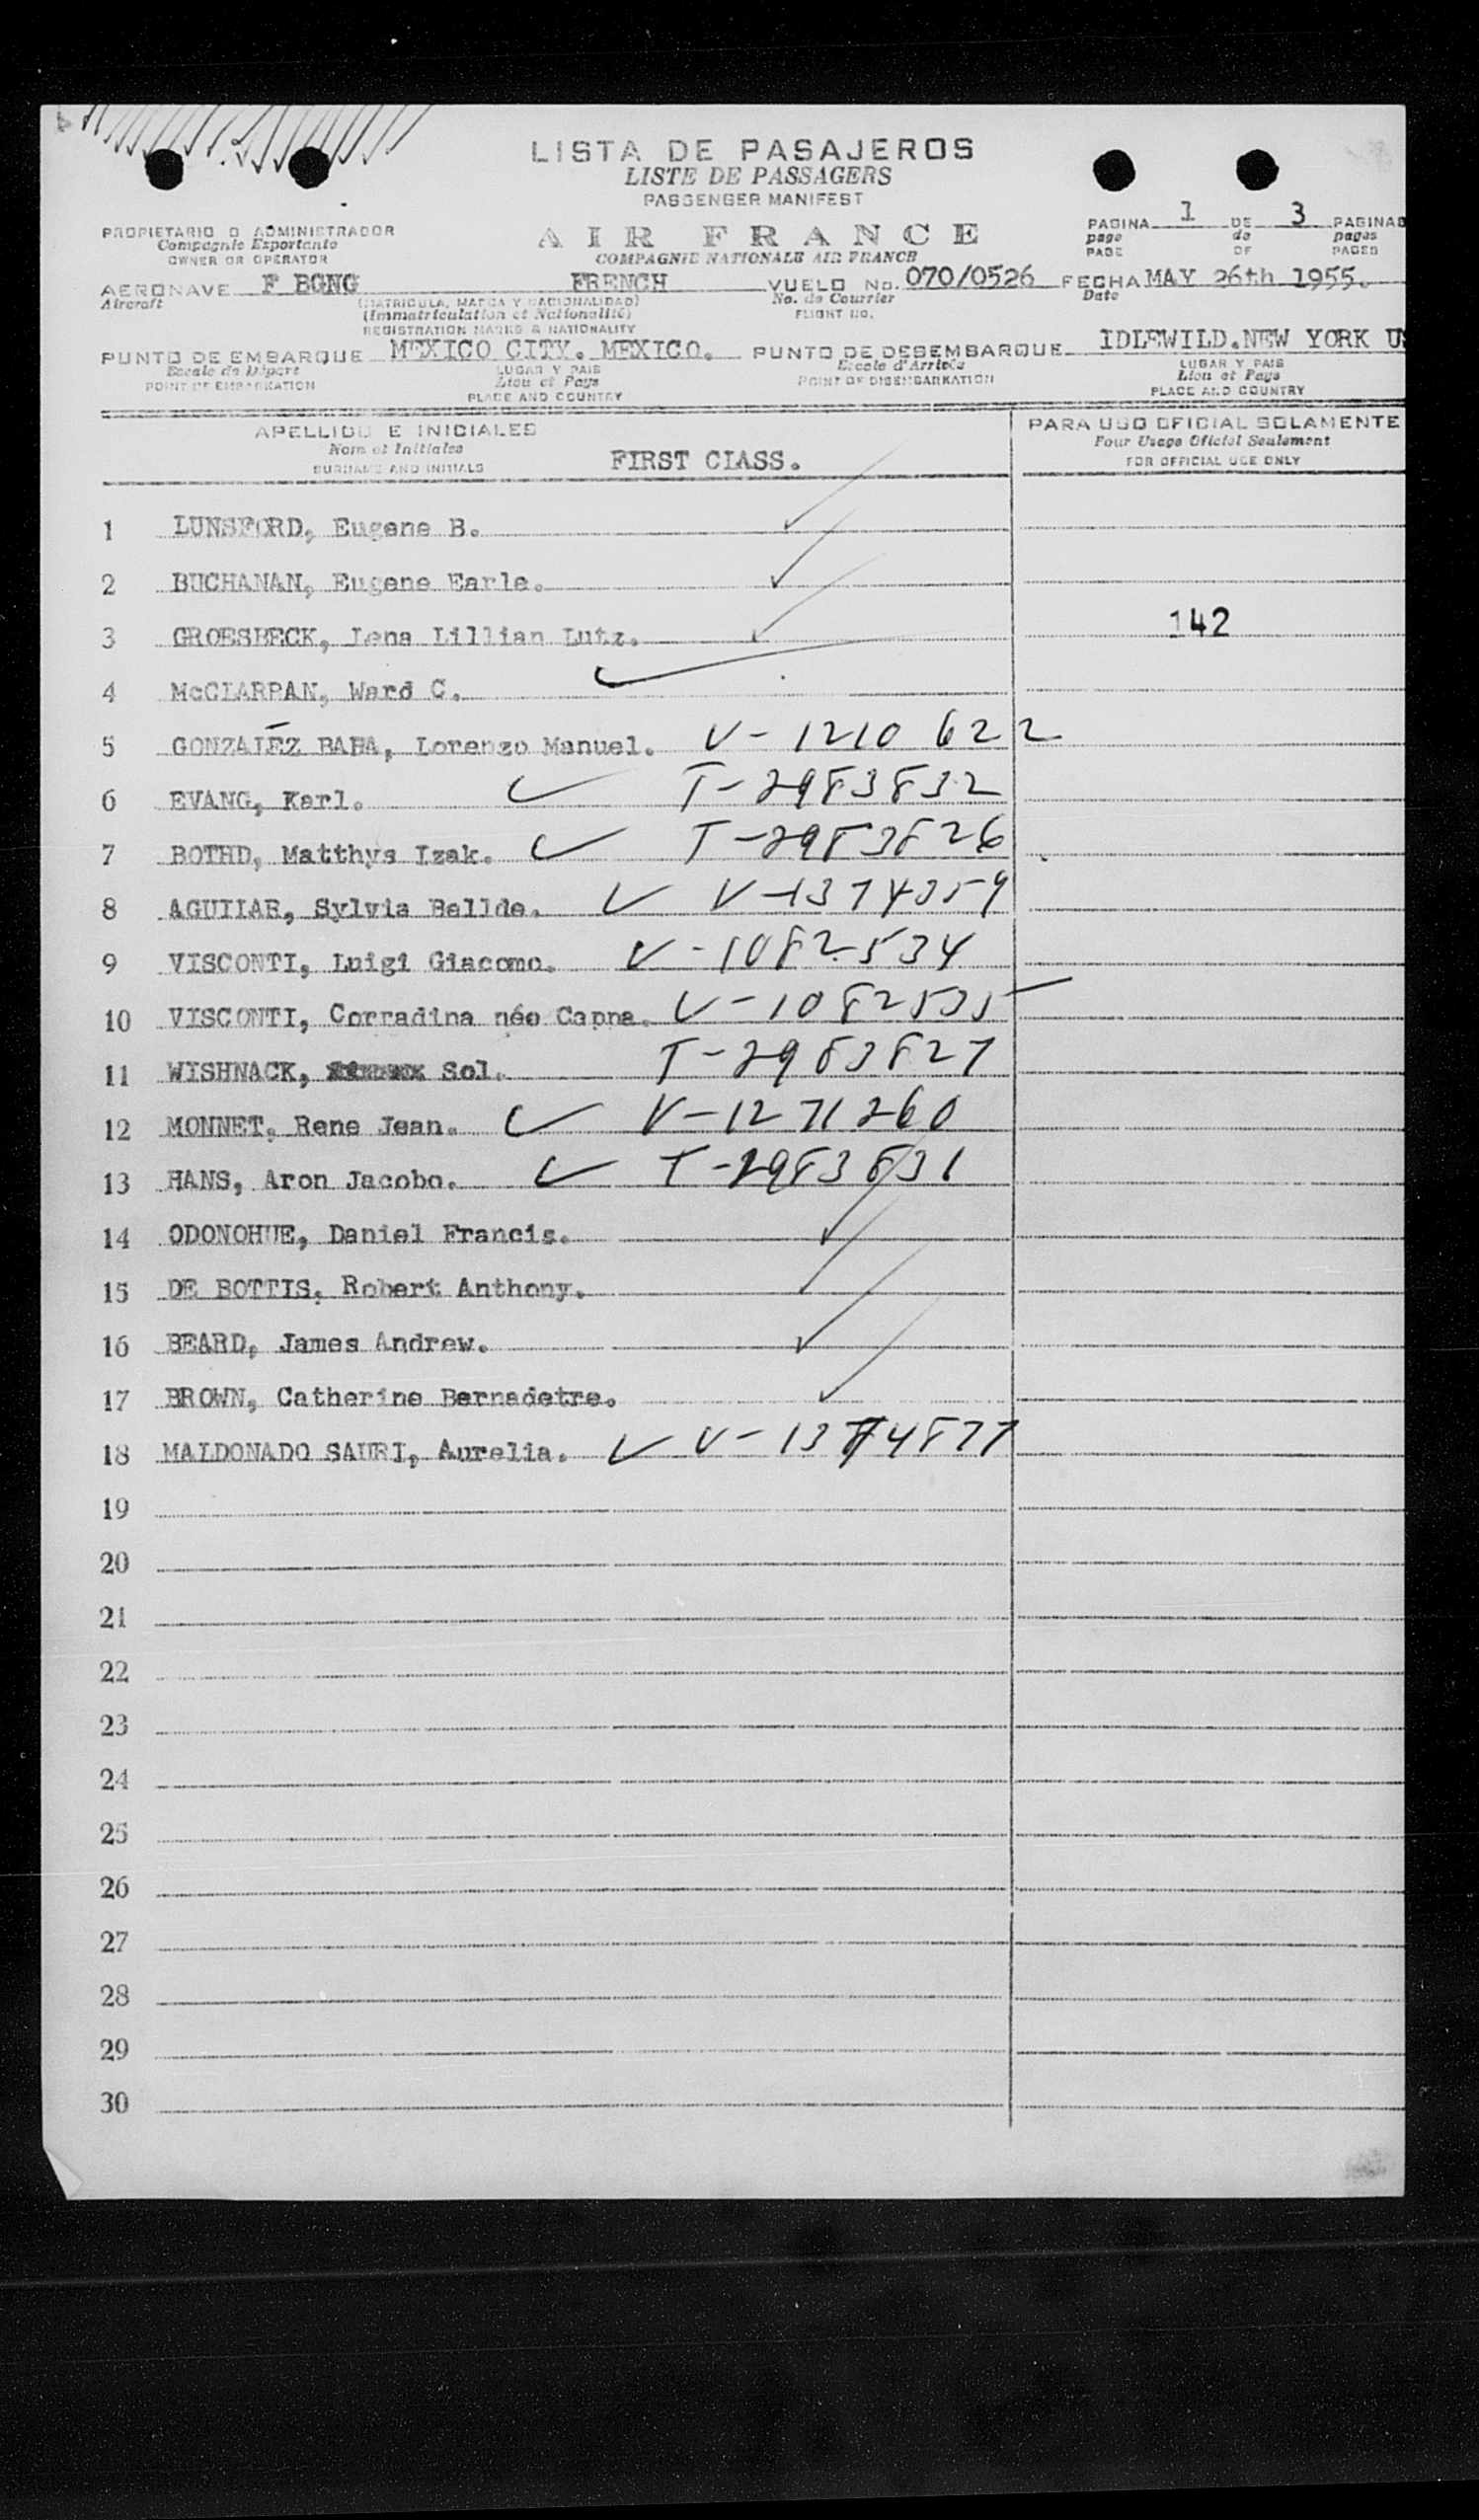 LISTA DE PASAJEROS
LISTE DE PASSAGERS
PASSENGER MANIFEST
PROPIETARIO O ADMINISTRADOR
Compagnie Exportante
OWNER OR OPERATOR
AIR FRANCE
COMPAGNIE NATIONALE AIR FRANCE
PAGINA 1 DE 3 PAGINAS
page de pages
PAGE OF PAGES
AERONAVE F BGNG FRENCH VUELO No. 070/0526 FECHA MAY 26th 1955.
Aircraft (MATRICULA, MARCA Y NACIONALIDAD) No. de Courrier Date
(Immatriculation et Nationalité) FLIGHT NO.
REGISTRATION MARKS & NATIONALITY
PUNTO DE EMBARQUE MEXICO CITY. MEXICO. PUNTO DE DESEMBARQUE IDLEWILD.NEW YORK US
Escale de Départ LUGAR Y PAIS Escale d'Arrivée LUGAR Y PAIS
POINT OF EMBARKATION Lieu et Pays POINT OF DISEMBARKATION Lieu et Pays
PLACE AND COUNTRY PLACE AND COUNTRY
APELLIDO E INICIALES PARA USO OFICIAL SOLAMENTE
Nom et Initiales Pour Usage Officiel Seulement
SURNAME AND INITIALS FIRST CLASS. FOR OFFICIAL USE ONLY
1 LUNSFORD, Eugene B.
2 BUCHANAN, Eugene Earle.
3 GROESBECK, Lena Lillian Lutz. 142
4 McCLARRAN, Ward C.
5 GONZALEZ BABA, Lorenzo Manuel. V-1210622
6 EVANG, Karl. T-2983832
7 BOTHD, Matthys Izak. T-2983826
8 AGUILAR, Sylvia Bellde. V-1374359
9 VISCONTI, Luigi Giacomo. V-1082534
10 VISCONTI, Corradina née Capna. V-1082535
11 WISHNACK, Sol. T-2983827
12 MONNET, Rene Jean. V-1271260
13 HANS, Aron Jacobo. T-2983831
14 ODONOHUE, Daniel Francis.
15 DE BOTTIS, Robert Anthony.
16 BEARD, James Andrew.
17 BROWN, Catherine Bernadetre.
18 MALDONADO SAURI, Aurelia. V-1374877
19
20
21
22
23
24
25
26
27
28
29
30